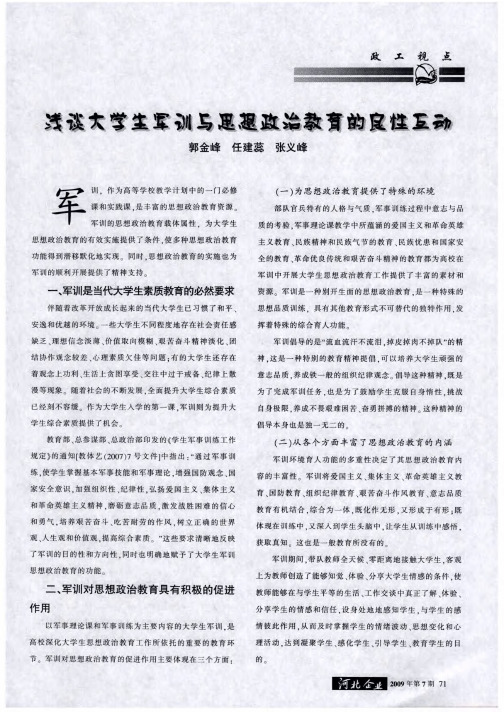 政工视点
浅谈大学生军训与思想政治教育的良性互动
郭金峰 任建蕊 张义峰
军训，作为高等学校教学计划中的一门必修
课和实践课，是丰富的思想政治教育资源。
军训的思想政治教育载体属性，为大学生
思想政治教育的有效实施提供了条件，使多种思想政治教育
功能得到潜移默化地实现。同时，思想政治教育的实施也为
军训的顺利开展提供了精神支持。
一、军训是当代大学生素质教育的必然要求
伴随着改革开放成长起来的当代大学生已习惯了和平、
安逸和优越的环境。一些大学生不同程度地存在社会责任感
缺乏、理想信念淡薄、价值取向模糊、艰苦奋斗精神淡化、团
结协作观念较差、心理素质欠佳等问题；有的大学生还存在
着观念上功利、生活上贪图享受、交往中过于戒备、纪律上散
漫等现象。随着社会的不断发展，全面提升大学生综合素质
已经刻不容缓。作为大学生入学的第一课，军训则为提升大
学生综合素质提供了机会。
教育部、总参谋部、总政治部印发的《学生军训练工作
规定》的通知[教体艺(2007)7号文件]中指出：“通过军事训
练，使学生掌握基本军事技能和军事理论，增强国防观念、国
家安全意识，加强组织性、纪律性，弘扬爱国主义、集体主义
和革命英雄主义精神，磨砺意志品质，激发战胜困难的信心
和勇气，培养艰苦奋斗、吃苦耐劳的作风，树立正确的世界
观、人生观和价值观，提高综合素质。”这些要求清晰地反映
了军训的目的性和方向性，同时也明确地赋予了大学生军训
思想政治教育的功能。
二、军训对思想政治教育具有积极的促进
作用
以军事理论课和军事训练为主要内容的大学生军训，是
高校深化大学生思想政治教育工作所依托的重要的教育环
节。军训对思想政治教育的促进作用主要体现在三个方面：
(一)为思想政治教育提供了特殊的环境
部队官兵特有的人格与气质、军事训练过程中意志与品
质的考验、军事理论课教学中所蕴涵的爱国主义和革命英雄
主义教育、民族精神和民族气节的教育、民族忧患和国家安
全的教育、革命优良传统和艰苦奋斗精神的教育都为高校在
军训中开展大学生思想政治教育工作提供了丰富的素材和
资源。军训是一种别开生面的思想政治教育，是一种特殊的
思想品质训练。具有其他教育形式不可替代的独特作用，发
挥着特殊的综合育人功能。
军训倡导的是“流血流汗不流泪，掉皮掉肉不掉队”的精
神，这是一种特别的教育精神提倡，可以培养大学生顽强的
意志品质，养成铁一般的组织纪律观念。倡导这种精神，既是
为了完成军训任务，也是为了鼓励学生克服自身惰性，挑战
自身极限，养成不畏艰难困苦、奋勇拼搏的精神。这种精神的
倡导本身也是独一无二的。
(二)从各个方面丰富了思想政治教育的内涵
军训环境育人功能的多重性决定了其思想政治教育内
容的丰富性。军训将爱国主义、集体主义、革命英雄主义教
育、国防教育、组织纪律教育、艰苦奋斗作风教育、意志品质
教育有机结合，综合为一体，既化作无形，又形成于有形；既
体现在训练中，又深入到学生头脑中，让学生从训练中感悟、
获取真知。这也是一般教育所没有的。
军训期间，带队教师全天候、零距离地接触大学生，客观
上为教师创造了能够知觉、体验、分享大学生情感的条件，使
教师能够在与学生平等的生活、工作交谈中真正了解、体验、
分享学生的情感和信任，设身处地地感知学生，与学生的感
情彼此作用，从而及时掌握学生的情绪波动、思想变化和心
理活动，达到凝聚学生、感化学生、引导学生、教育学生的目
的。
河北企业 2009年第7期 71